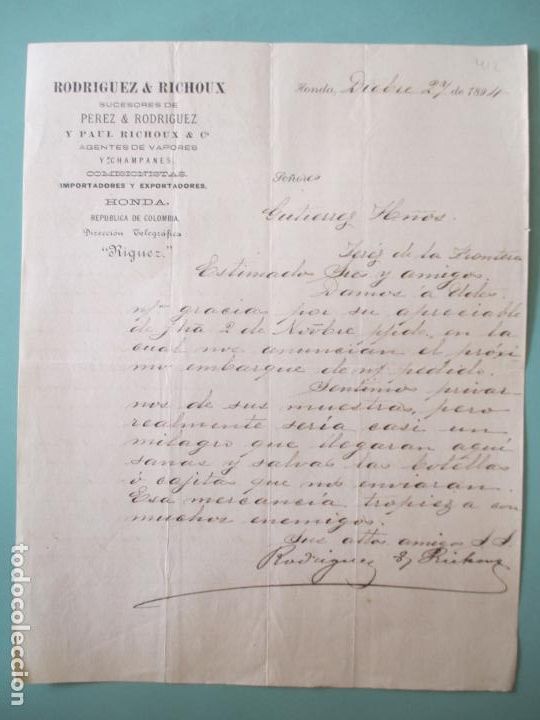 412
RODRIGUEZ & RICHOUX
SUCESORES DE
PEREZ & RODRIGUEZ
Y PAUL RICHOUX & Cº
AGENTES DE VAPORES
Y CHAMPANES.
COMISIONISTAS.
IMPORTADORES Y EXPORTADORES.
HONDA.
REPUBLICA DE COLOMBIA.
Dirección Telegráfica
"Riguez."
Honda, Dicbre 27 de 1894
Señores
Gutierrez Hños.
Jeréz de la Frontera
Estimados Sres y amigos.
Damos á Udes.
nrs gracias por su apreciable
de fha 2 de Noübre ppdo, en la
cual nos anuncian el próxi
mo embarque de nr pedido.
Sentimos privar
nos de sus muestras, pero
realmente sería casi un
milagro que llegaran aquí
sanas y salvas las botellas
ó cajitas que nos enviaran.
Esa mercancía tropieza con
muchos enemigos.
Sus attos amigos S. S.
Rodriguez & Richoux
todocoleccion